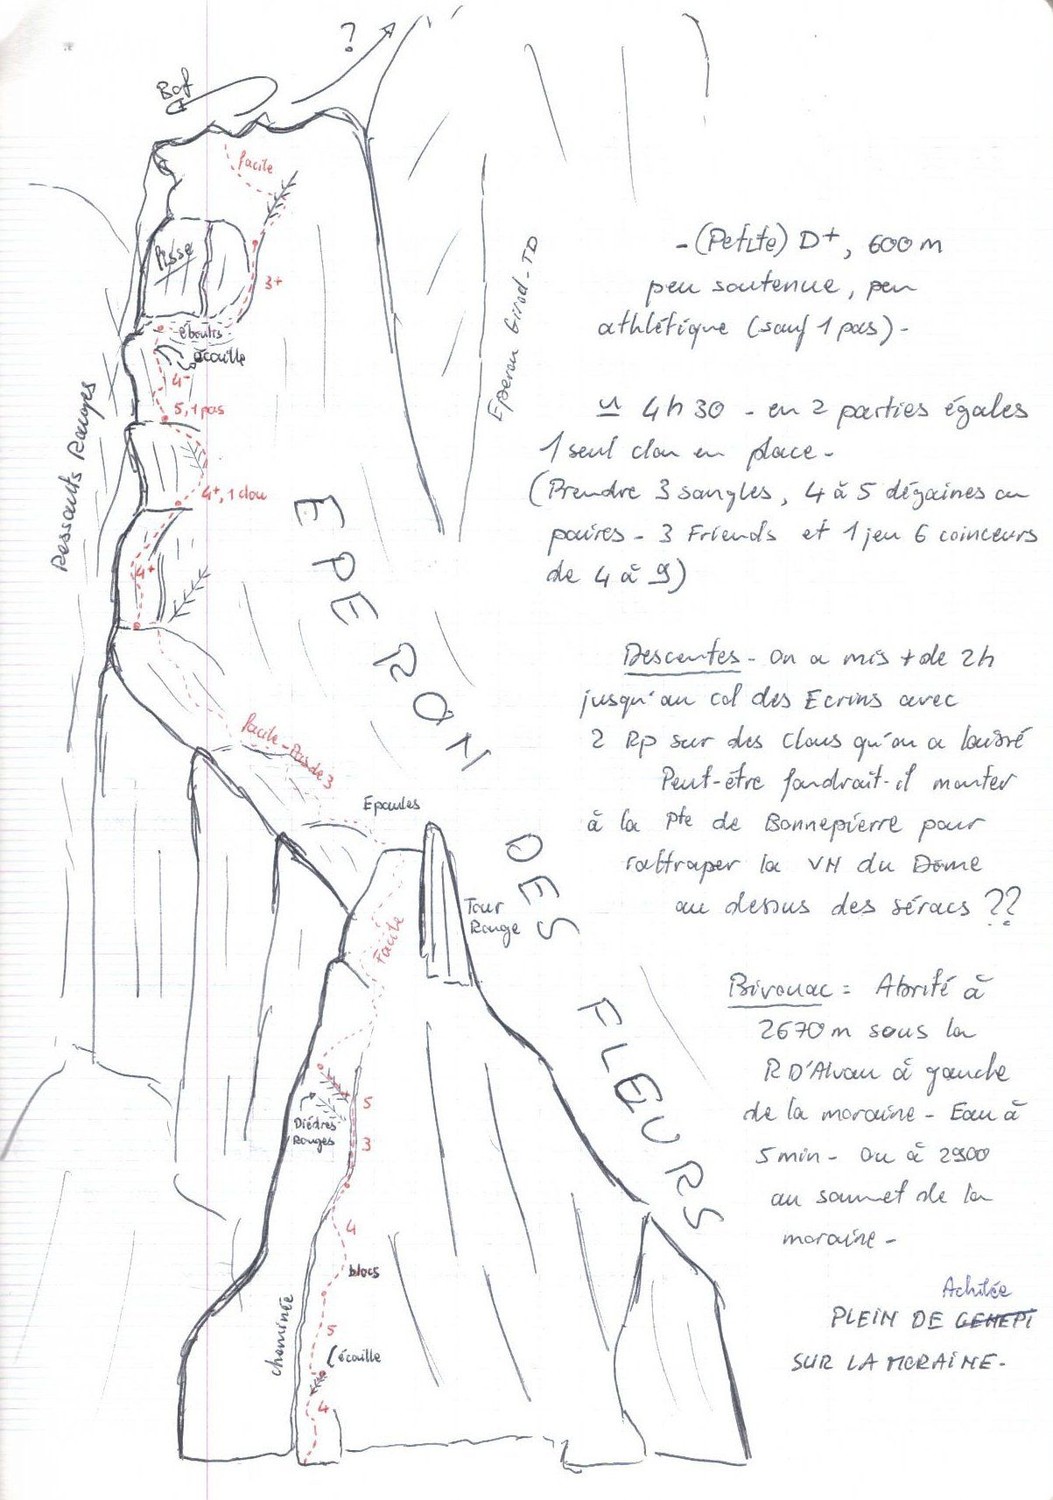 ?
Bof
facile
Pisse
3+
éboulis
écaille
4-
5, 1 pas
4+, 1 clou
4+
Ressauts Rouges
Eperon Girod-TD
EPERON DES FLEURS
facile - Pas de 3
Epaules
Tour
Rouge
Facile
Dièdres
Rouges
5
3
4
blocs
5
(écaille
cheminée
4
- (Petite) D+, 600 m
peu soutenue, peu
athlétique (sauf 1 pas) -
≃ 4h30 - en 2 parties égales
1 seul clou en place -
(Prendre 3 sangles, 4 à 5 dégaines ou
paires - 3 Friends et 1 jeu 6 coinceurs
de 4 à 9)
Descentes - On a mis + de 2h
jusqu'au col des Ecrins avec
2 Rp sur des clous qu'on a laissé
Peut-être faudrait-il monter
à la Pte de Bonnepierre pour
rattraper la VN du Dome
au dessus des séracs ??
Bivouac = Abrité à
2670m sous la
R D'Alvau à gauche
de la moraine - Eau à
5 min - Ou à 2900
au sommet de la
moraine -
Achilée
PLEIN DE GENEPI
SUR LA MORAINE -